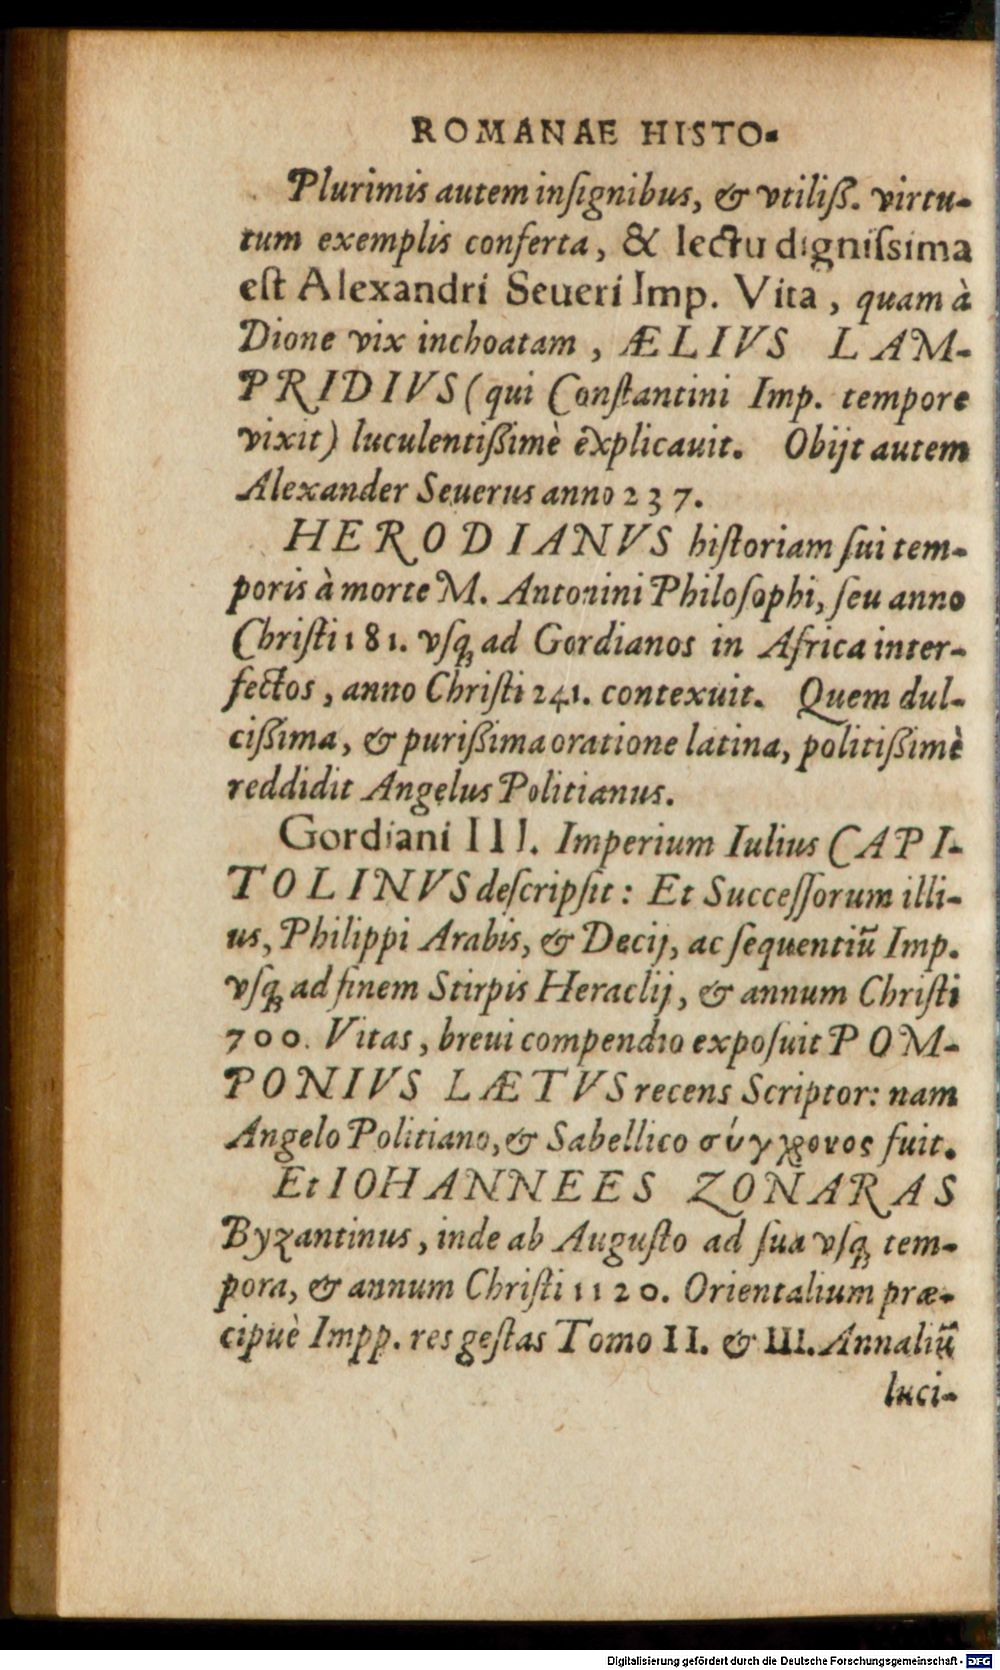 ROMANAE HISTO-
Plurimis autem inſignibus, & vtiliß. virtu-
tum exemplis conferta, & lectu digniſsima
eſt Alexandri Seueri Imp. Vita, quam à
Dione vix inchoatam, ÆLIVS LAM-
PRIDIVS (qui Conſtantini Imp. tempore
vixit) luculentißimè explicauit. Obijt autem
Alexander Seuerus anno 237.
HERODIANVS hiſtoriam ſui tem-
poris à morte M. Antonini Philoſophi, ſeu anno
Chriſti 181. vſq; ad Gordianos in Africa inter-
fectos, anno Chriſti 241. contexuit. Quem dul-
cißima, & purißima oratione latina, politißimè
reddidit Angelus Politianus.
Gordiani III. Imperium Iulius CAPI-
TOLINVS deſcripſit: Et Succeſſorum illi-
us, Philippi Arabis, & Decij, ac ſequentiũ Imp.
vſq; ad finem Stirpis Heraclij, & annum Chriſti
700. Vitas, breui compendio expoſuit POM-
PONIVS LÆTVS recens Scriptor: nam
Angelo Politiano, & Sabellico σύγχρονος fuit.
Et IOHANNEES ZONARAS
Byzantinus, inde ab Auguſto ad ſua vſq; tem-
pora, & annum Chriſti 1120. Orientalium præ-
cipuè Impp. res geſtas Tomo II. & III. Annaliũ
luci-
Digitalisierung gefördert durch die Deutsche Forschungsgemeinschaft - DFG